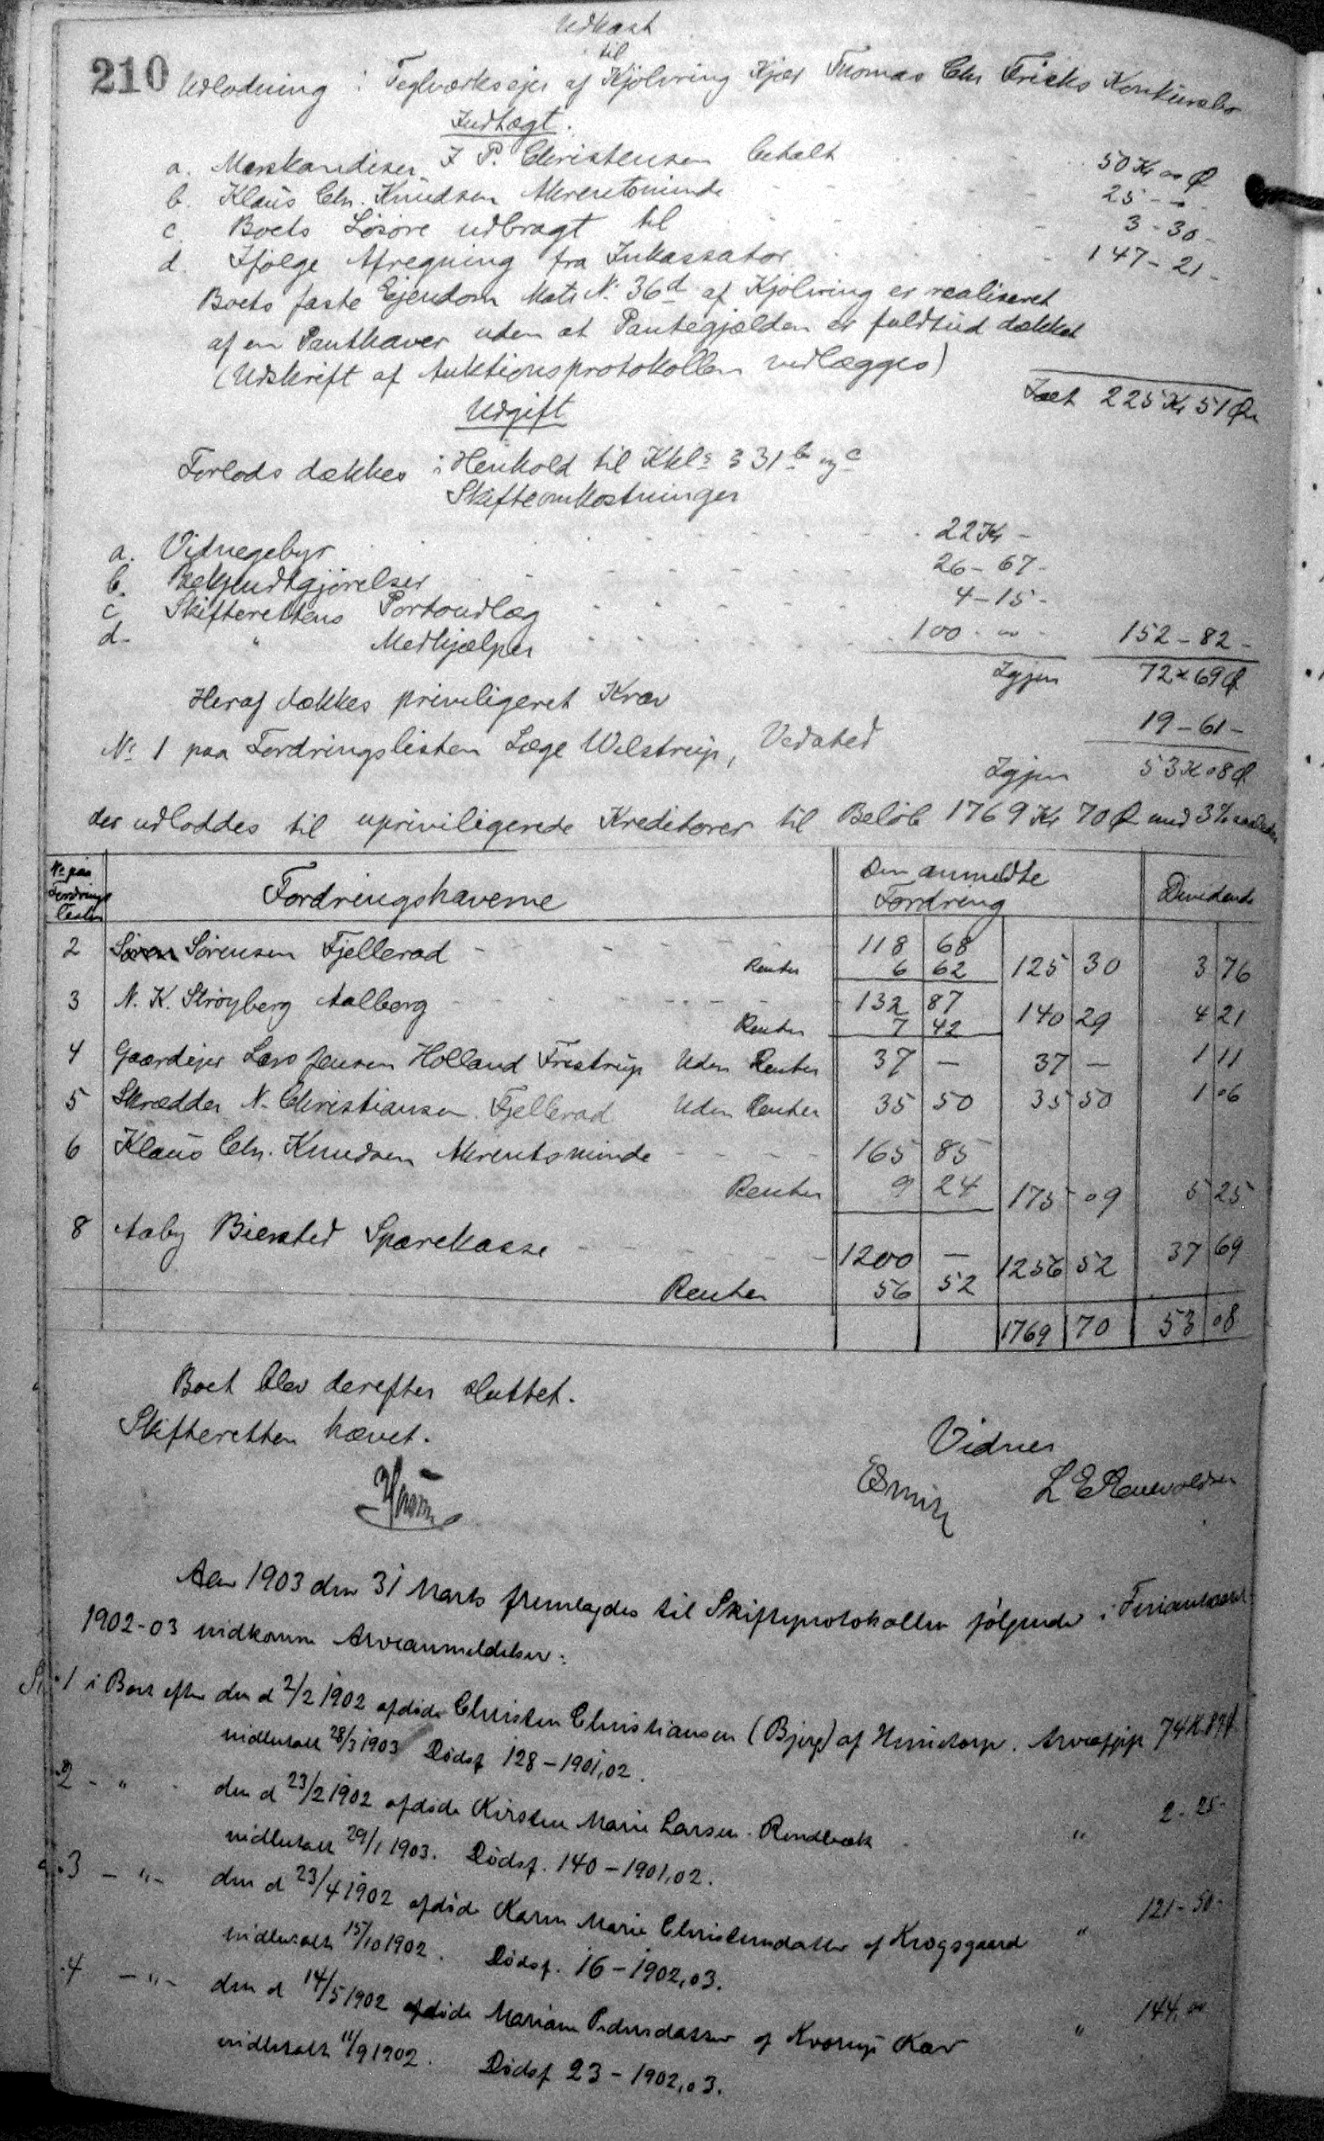 210
Udkast
til
Udlodning i Teglværksejer af Kjølvring Kjær Thomas Chr Fricks Konkursbo
Indtægt.
a. Marskandiser J P. Christensen betalt 50 Kr 00 Ø
b. Klaus Chr. Knudsen Mrentsminde 25 - " -
c. Boets Løsøre udbragt til 3 - 30 -
d. Ifølge Afregning fra Inkassator 147 - 21 -
Boets faste Ejendom Matr N. 36d af Kjølvring er realiseret
af en Panthaver uden at Pantegjælden er fuldtud dækket
(Udskrift af Auktionsprotokollen vedlægges)
Ialt 225 Kr 51 Ø
Udgift
Forlods dækkes i Henhold til Kkls § 31 b og c
Skifteomkostninger
a. Vidnegebyr 22 Kr -
b. Bekjendtgjørelser 26 - 67 -
c Skifterettens Portoudlæg 4 - 15 -
d - " Medhjælper 100 - 00 - 152 - 82 -
Igjen 72 Kr 69 Ø
Heraf dækkes priviligeret Krav
Nr 1 paa Fordringslisten Læge Wilstrup, Vedsted 19 - 61 -
Igjen 53 Kr 08 Ø
der udloddes til upriviligerede Kreditorer til Beløb 1769 Kr 70 Ø med 3% saaledes
Nr paa Fordrings Listen Fordringshaverne Den anmeldte Fordring Dividende
2 Søren Sørensen Fjellerad 118 68
Renter 6 62 125 30 3 76
3 N. K. Strøyberg Aalborg 132 87
Renter 7 42 140 29 4 21
4 Gaardejer Lars Jensen Holland Frestrup Uden Renter 37 — 37 — 1 11
5 Skrædder N. Christiansen Fjellerad Uden Renter 35 50 35 50 1 06
6 Klaus Chr. Knudsen Mrentsminde 165 85
Renter 9 24 175 09 5 25
8 Aaby Biersted Sparekasse 1200 — 1256 52 37 69
Renter 56 52
1769 70 53 08
Boet blev derefter sluttet.
Skifteretten hævet.
Vidner
L E Enevoldsen
Aar 1903 den 31 Marts fremlagdes til Skifteprotokollen følgende i Finansaaret
1902-03 indkomne Arveanmeldelser:
1 i Boet efter den d 2/2 1902 afdøde Christen Christiansen (Bjerg) af . Arveafgift 74 K. 89 Ø.
indbetalt 28/3 1903 Dødsf 128 - 1901,02.
2 - " - den d 23/2 1902 afdøde Kirsten Marie Larsen. Rendbæk " 2 - 25 -
indbetalt 29/1 1903. Dødsf. 140 - 1901,02.
3 - " - den d 23/4 1902 afdøde Karen Marie Christensdatter af Krogsgaard " 121 - 50 -
indbetalt 15/10 1902. Dødsf. 16 - 1902,03.
4 - " - den d 14/5 1902 afdøde Mariane Pedersdatter af Kvorup Kær " 144. 00
indbetalt 11/9 1902. Dødsf 23 - 1902,03.